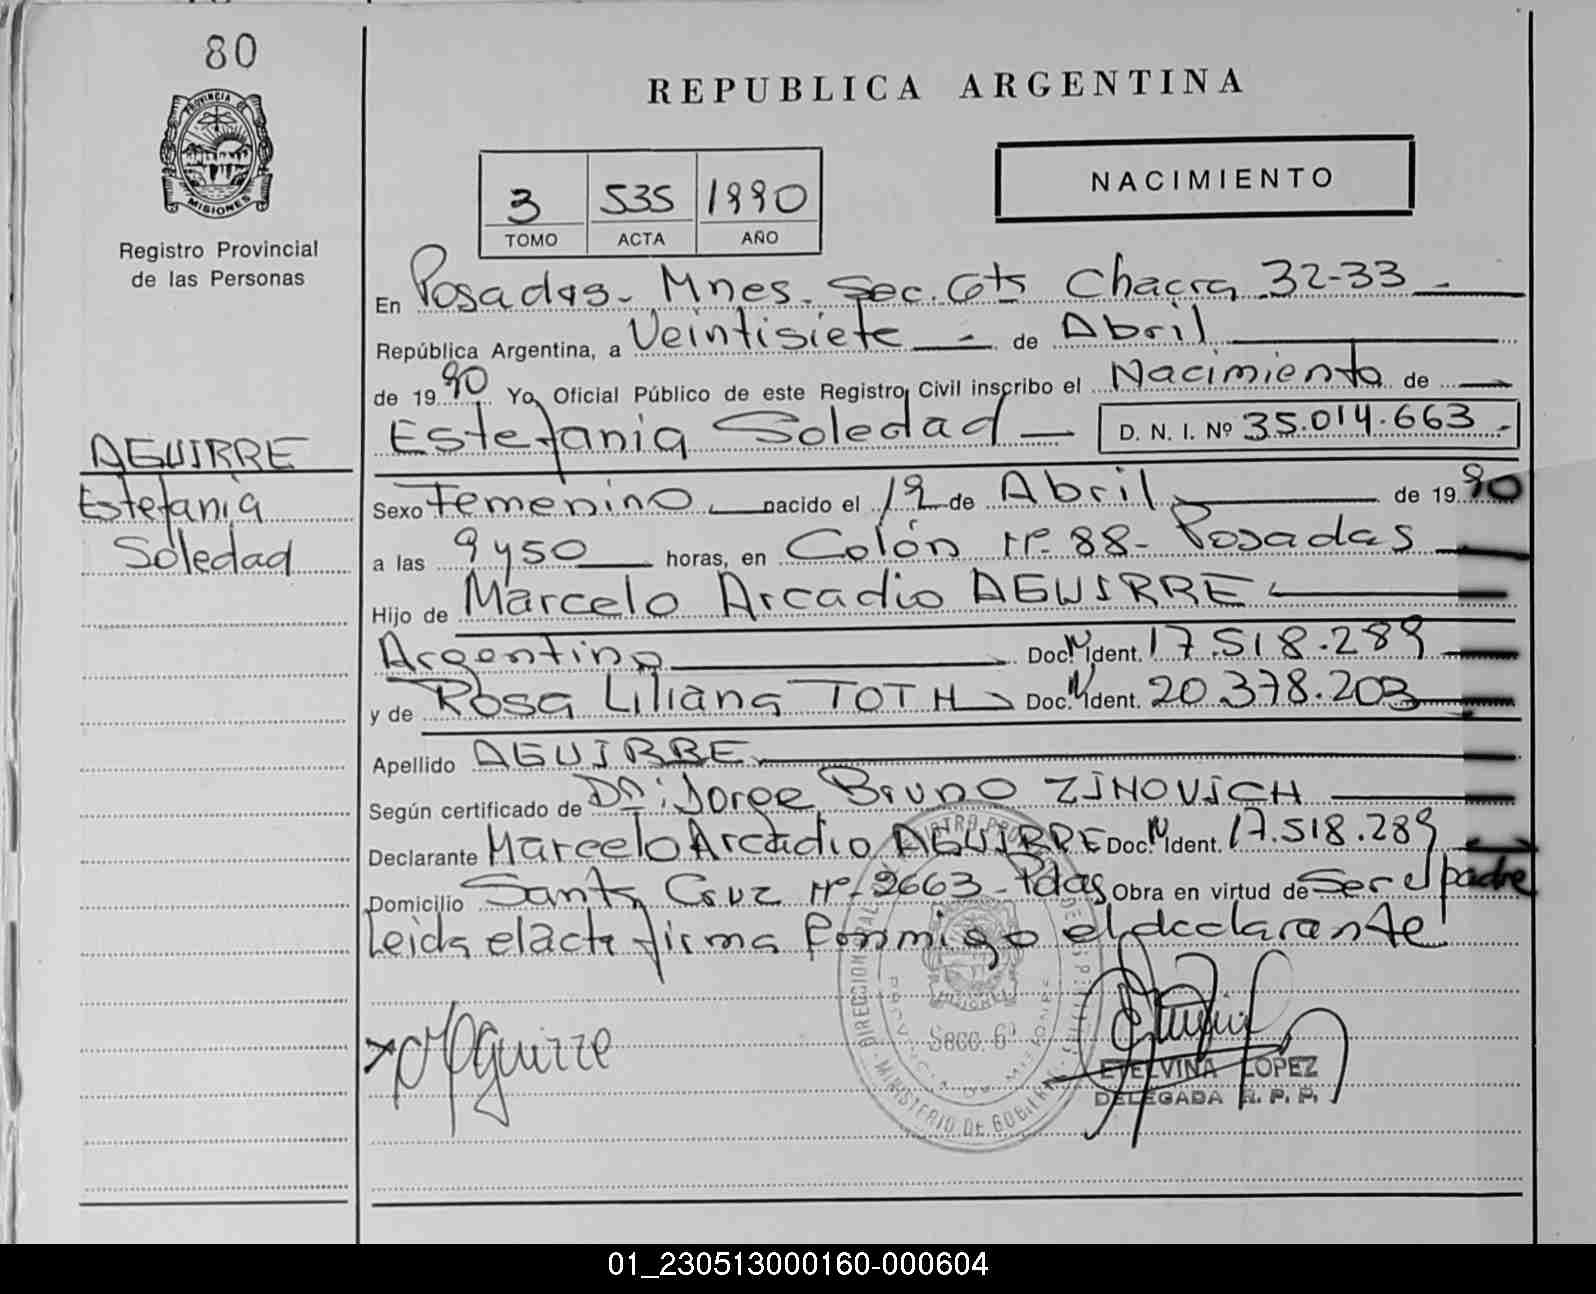 80
PROVINCIA DE
MISIONES
Registro Provincial
de las Personas
REPUBLICA ARGENTINA
NACIMIENTO
3 535 1990
TOMO ACTA AÑO
En Posadas - Mnes. Sec. 6ta Chacra 32-33 -
República Argentina, a Veintisiete - de Abril
de 1990 Yo, Oficial Público de este Registro Civil inscribo el Nacimiento de
Estefania Soledad D. N. I. Nº 35.014.663 -
AGUIRRE
Estefania
Soledad
Sexo Femenino nacido el 19 de Abril de 1990
a las 9 y 50 horas, en Colón Nº 88 - Posadas
Hijo de Marcelo Arcadio AGUIRRE
Argentino Doc. N Ident. 17.518.289
y de Rosa Liliana TOTH Doc. N Ident. 20.378.203
Apellido AGUIRRE
Según certificado de Dr: Jorge Bruno ZINOVICH
Declarante Marcelo Arcadio AGUIRRE Doc. N Ident. 17.518.289
Domicilio Santa Cruz Nº 2663 - Pdas Obra en virtud de Ser el padre
Leida el acta firma conmigo el declarante
MAguirre
Secc. 6ª
PROVINCIA DE MISIONES
MINISTERIO DE GOBIERNO
ETELVINA LOPEZ
DELEGADA R. P. P.
01_230513000160-000604